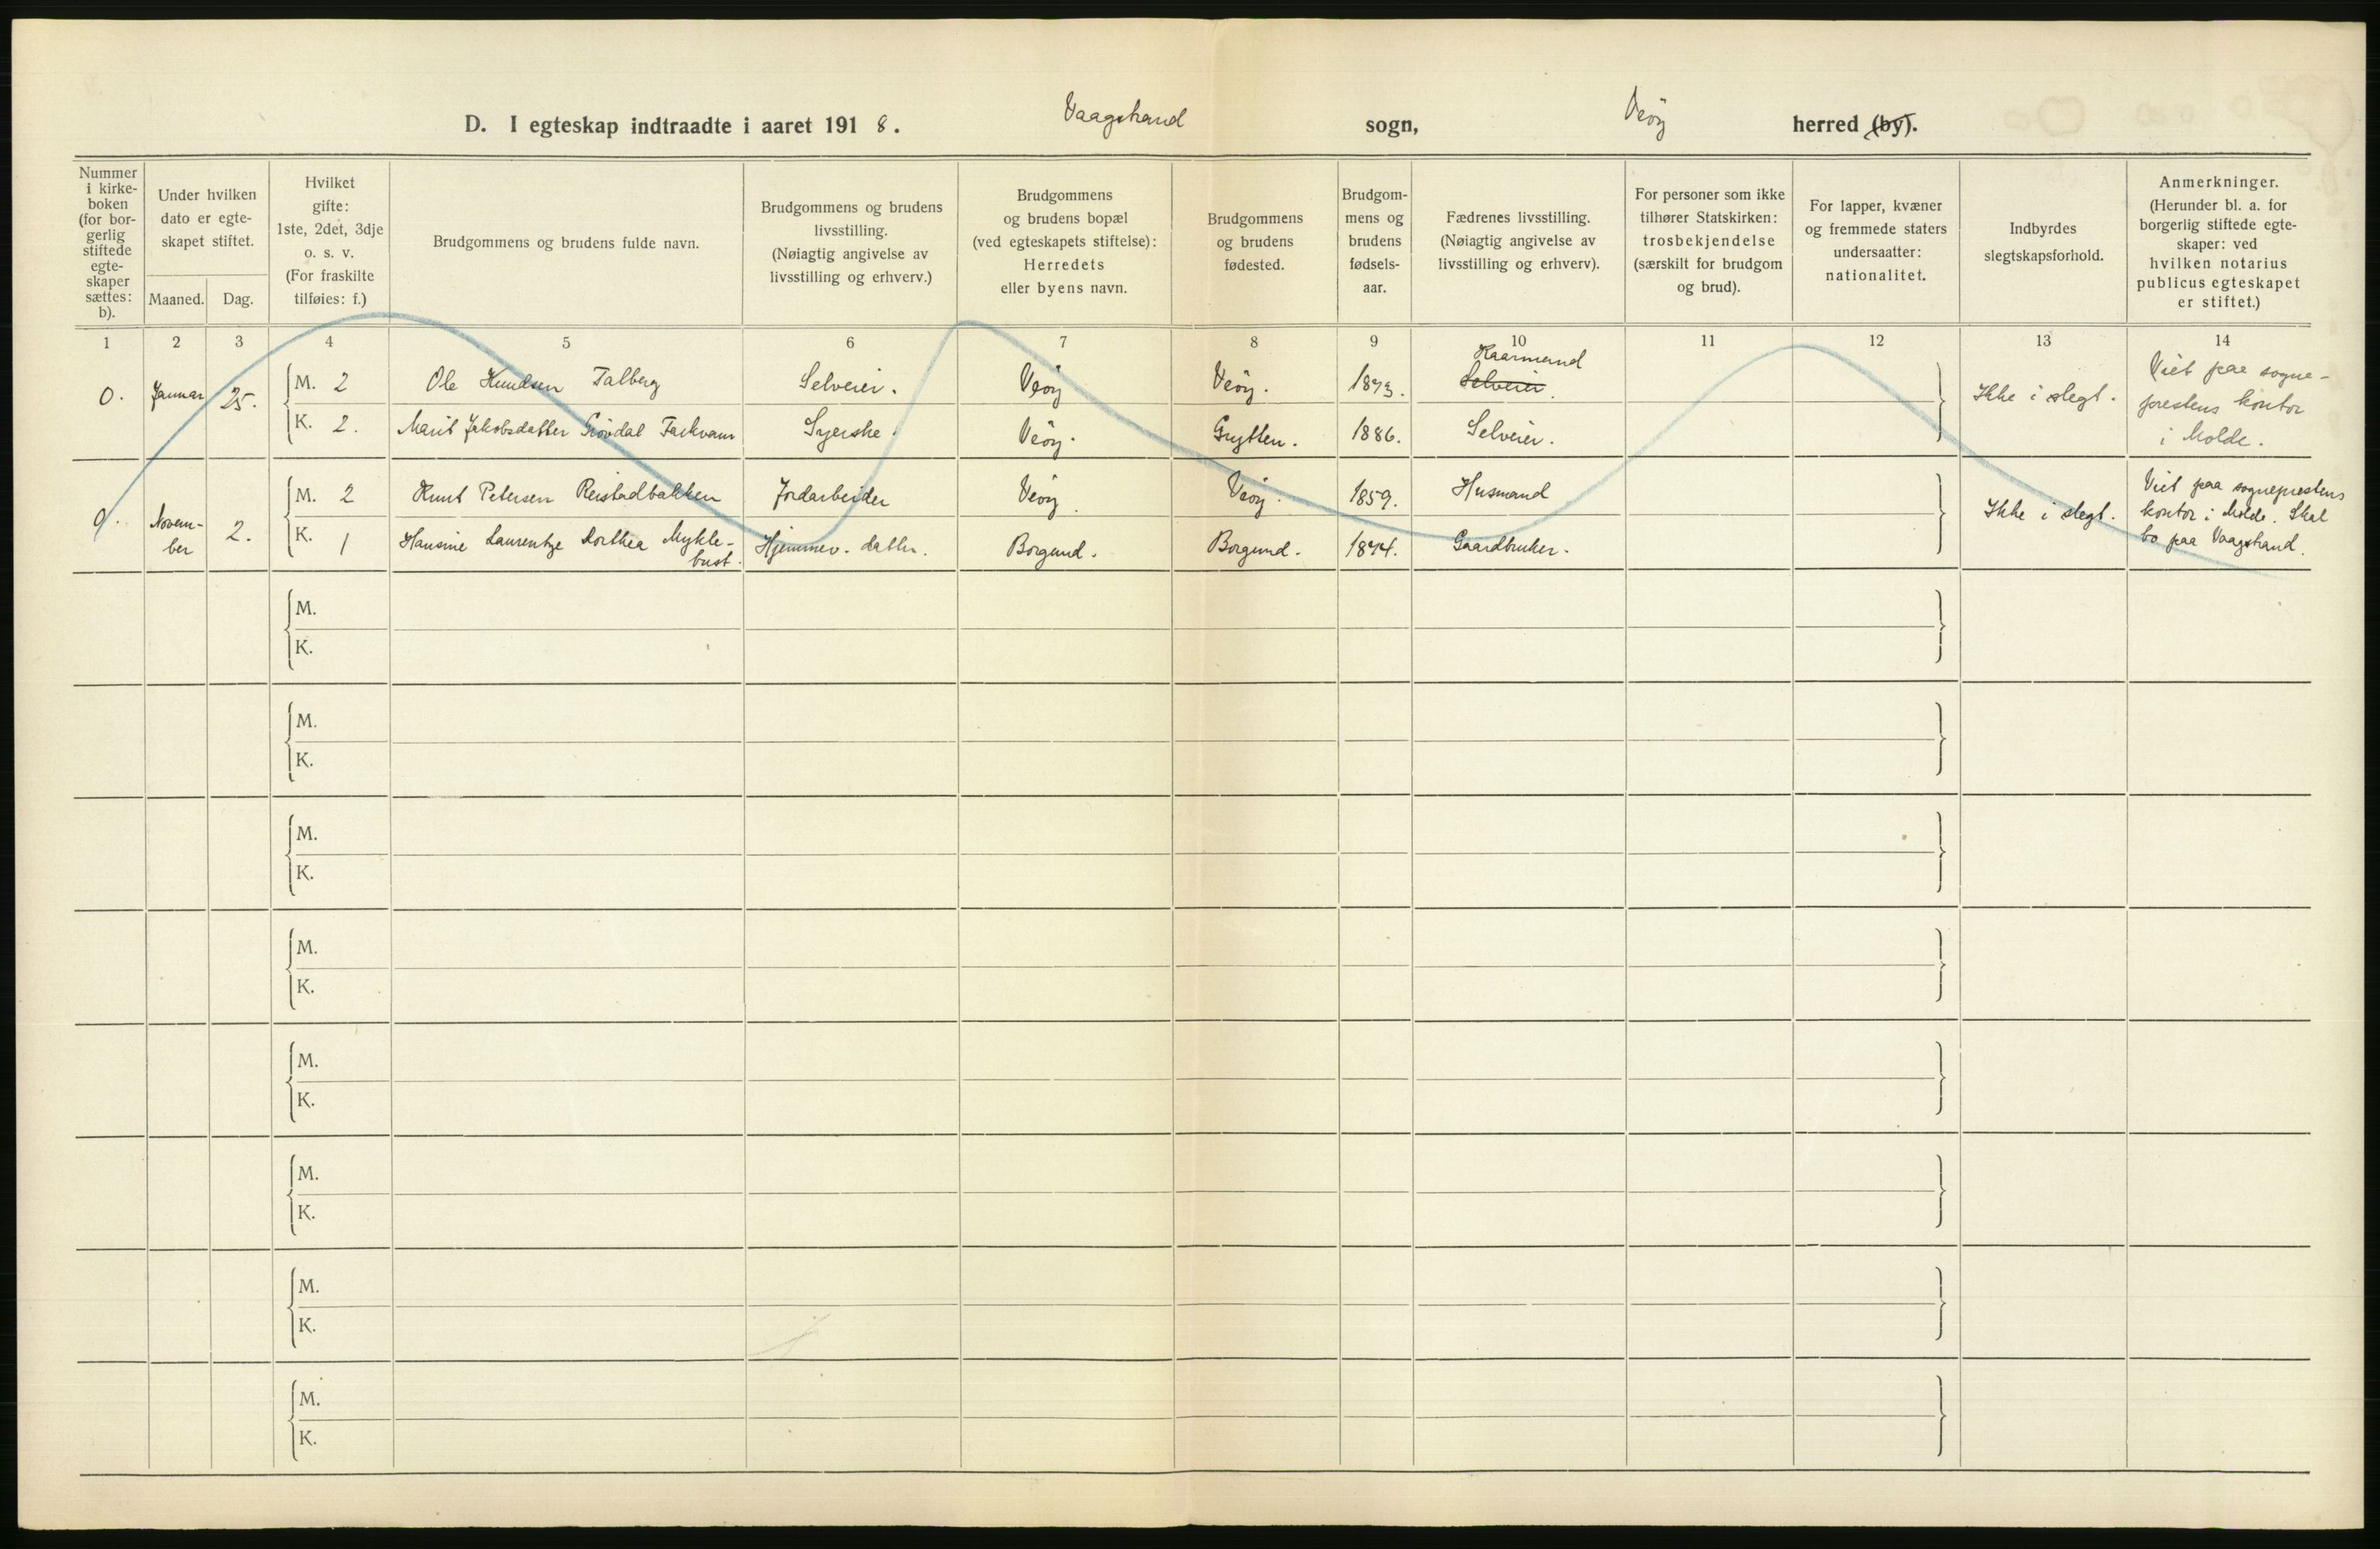 D. I egteskap indtraadte i aaret 1918. Vaagstrand sogn, Veöy herred (by).
Nummer
i kirke-
boken
(for bor-
gerlig
stiftede
egte-
skaper
sættes:
b).
Under hvilken
dato er egte-
skapet stiftet.
Maaned. Dag.
Hvilket
gifte:
1ste, 2det, 3dje
o. s. v.
(For fraskilte
tilføies: f.)
Brudgommens og brudens fulde navn.
Brudgommens og brudens
livsstilling.
(Nøiagtig angivelse av
livsstilling og erhverv.)
Brudgommens
og brudens bopæl
(ved egteskapets stiftelse):
Herredets
eller byens navn.
Brudgommens
og brudens
fødested.
Brudgom-
mens og
brudens
fødsels-
aar.
Fædrenes livsstilling.
(Nøiagtig angivelse av
livsstilling og erhverv).
For personer som ikke
tilhører Statskirken:
trosbekjendelse
(særskilt for brudgom
og brud).
For lapper, kvæner
og fremmede staters
undersaatter:
nationalitet.
Indbyrdes
slegtskapsforhold.
Anmerkninger.
(Herunder bl. a. for
borgerlig stiftede egte-
skaper: ved
hvilken notarius
publicus egteskapet
er stiftet.)
1 2 3 4 5 6 7 8 9 10 11 12 13 14
0. Januar 25.
M. 2 Ole Knudsen Talberg Selveier. Veöy Veöy. 1873. Kaarmand Selveier.
K. 2. Marit Jakobsdatter Grövdal Syerske. Veöy. Grytten. 1886. Selveier.
Ikke i slegt.
Viet paa sogne-
prestens kontor
i Molde.
0. Novem-
ber 2.
M. 2 Knut Petersen Reistadbakken Jordarbeider Veöy. Veöy. 1859. Husmand
K. 1 Hansine Laurentze Dorthea Mykle-
bust. Hjemmev. datter. Borgund. Borgund. 1874. Gaardbruker.
Ikke i slegt.
Viet paa sogneprestens
kontor i Molde. Skal
bo paa Vaagstrand.
M.
K.
M.
K.
M.
K.
M.
K.
M.
K.
M.
K.
M.
K.
M.
K.